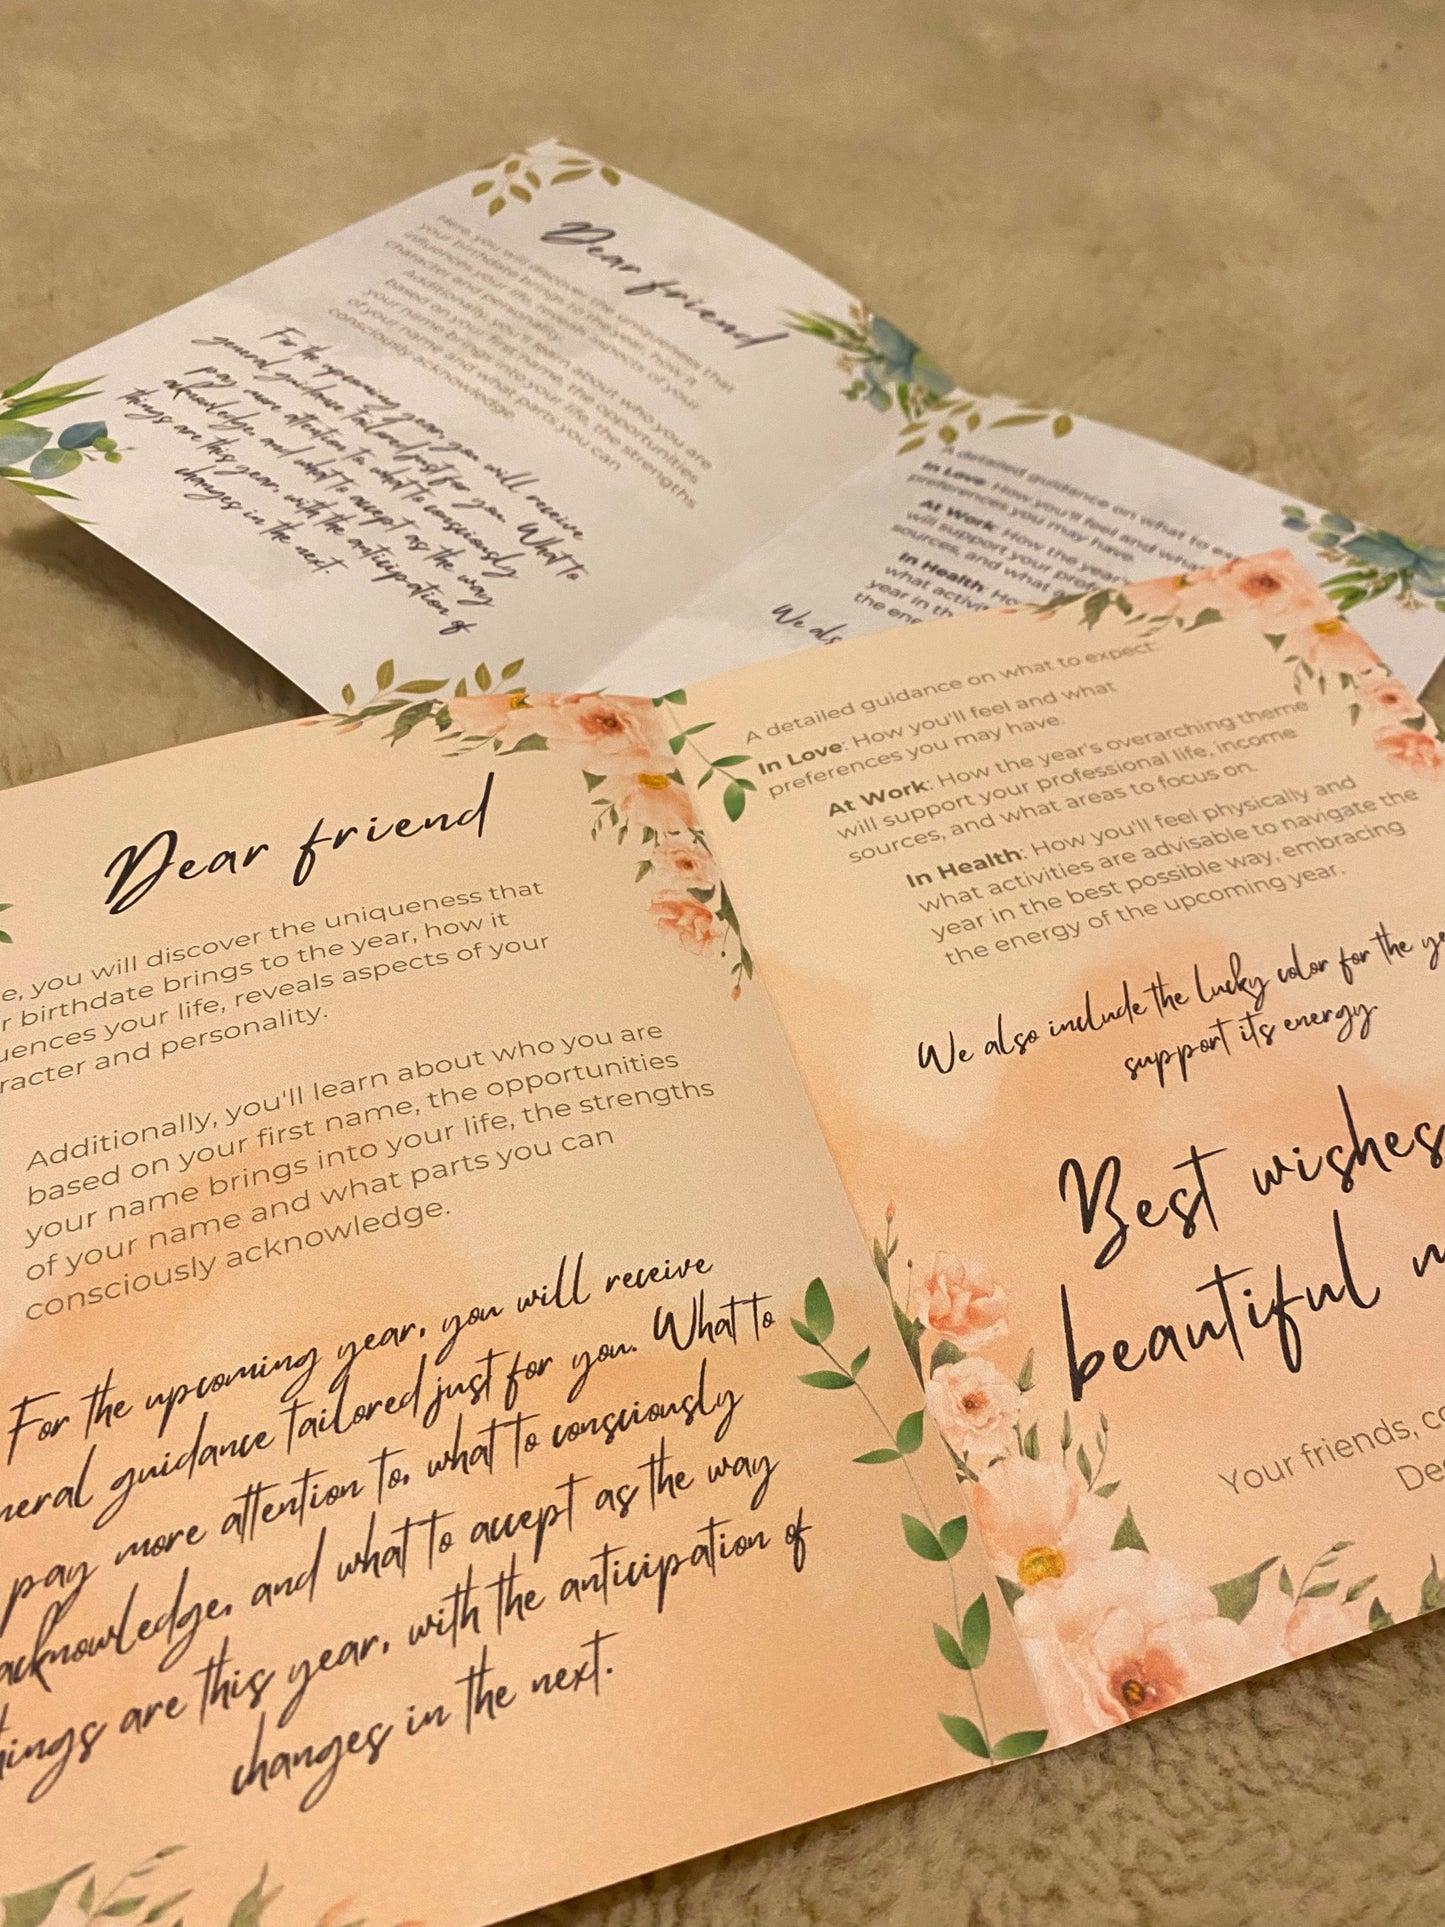 Dear friend
Here, you will discover the uniqueness that
your birthdate brings to the year, how it
influences your life, reveals aspects of your
character and personality.
Additionally, you'll learn about who you are
based on your first name, the opportunities
your name brings into your life, the strengths
of your name and what parts you can
consciously acknowledge.
For the upcoming year, you will receive
general guidance tailored just for you. What to
pay more attention to, what to consciously
acknowledge, and what to accept as the way
things are this year, with the anticipation of
changes in the next.
A detailed guidance on what to
In Love: How you'll feel and what
preferences you may have.
At Work: How the year's
will support your
sources, and what
In Health:
what
year in
the
We
Dear friend
you will discover the uniqueness that
birthdate brings to the year, how it
your life, reveals aspects of your
and personality.
Additionally, you'll learn about who you are
based on your first name, the opportunities
your name brings into your life, the strengths
of your name and what parts you can
consciously acknowledge.
For the upcoming year, you will receive
guidance tailored just for you. What to
pay more attention to, what to consciously
acknowledge, and what to accept as the way
things are this year, with the anticipation of
changes in the next.
A detailed guidance on what to expect:
In Love: How you'll feel and what
preferences you may have.
At Work: How the year's overarching theme
will support your professional life, income
sources, and what areas to focus on.
In Health: How you'll feel physically and
what activities are advisable to navigate the
year in the best possible way, embracing
the energy of the upcoming year.
We also include the lucky color for the
support its energy.
Best wishes
beautiful
Your friends,